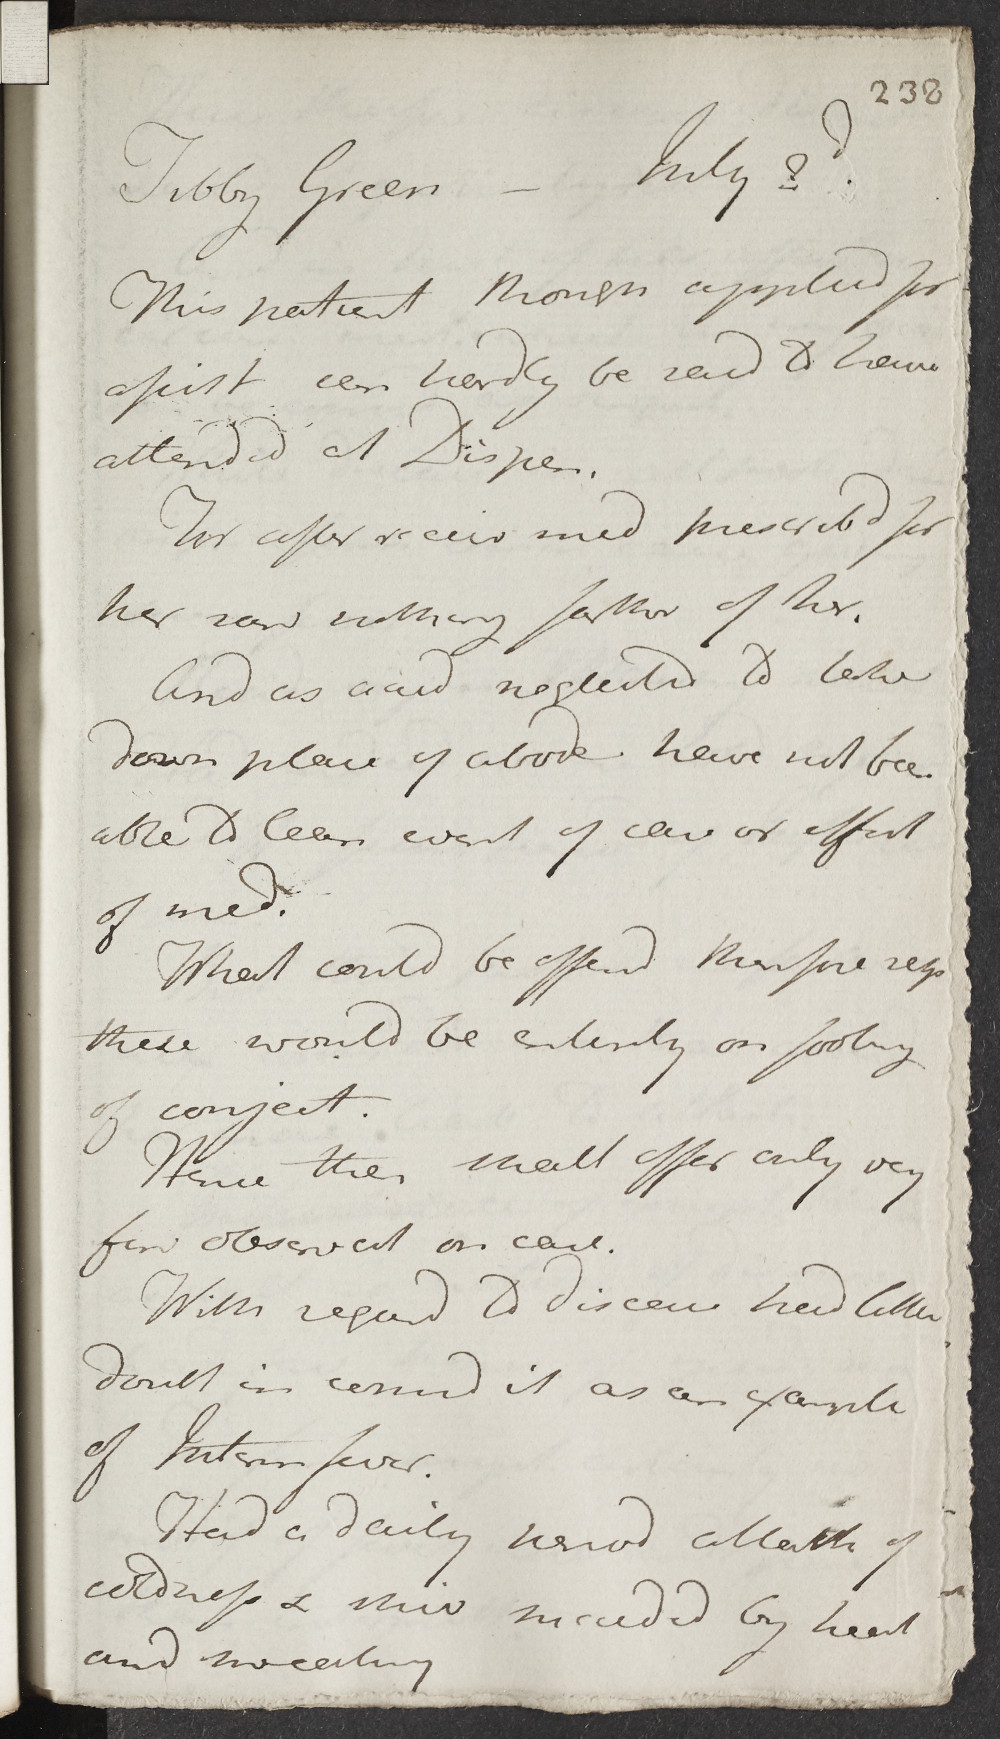 238
Tibby Green – July 2d.
This patient though applied for
assist can hardly be said to have
attended at Dispen.
For after receiv med prescribd for
her saw nothing farther of her.
And as accid neglected to take
down place of abode have not been
able to learn event of case or effect
of med.
What could be offerd therefore resp
these would be entirely on footing
of conject.
Hence then shall offer only very
few observat on case.
With regard to disease had little
doubt in considd it as an example
of Interm fever.
Had a daily period attack of
coldness & shiv succeeded by heat
and sweating